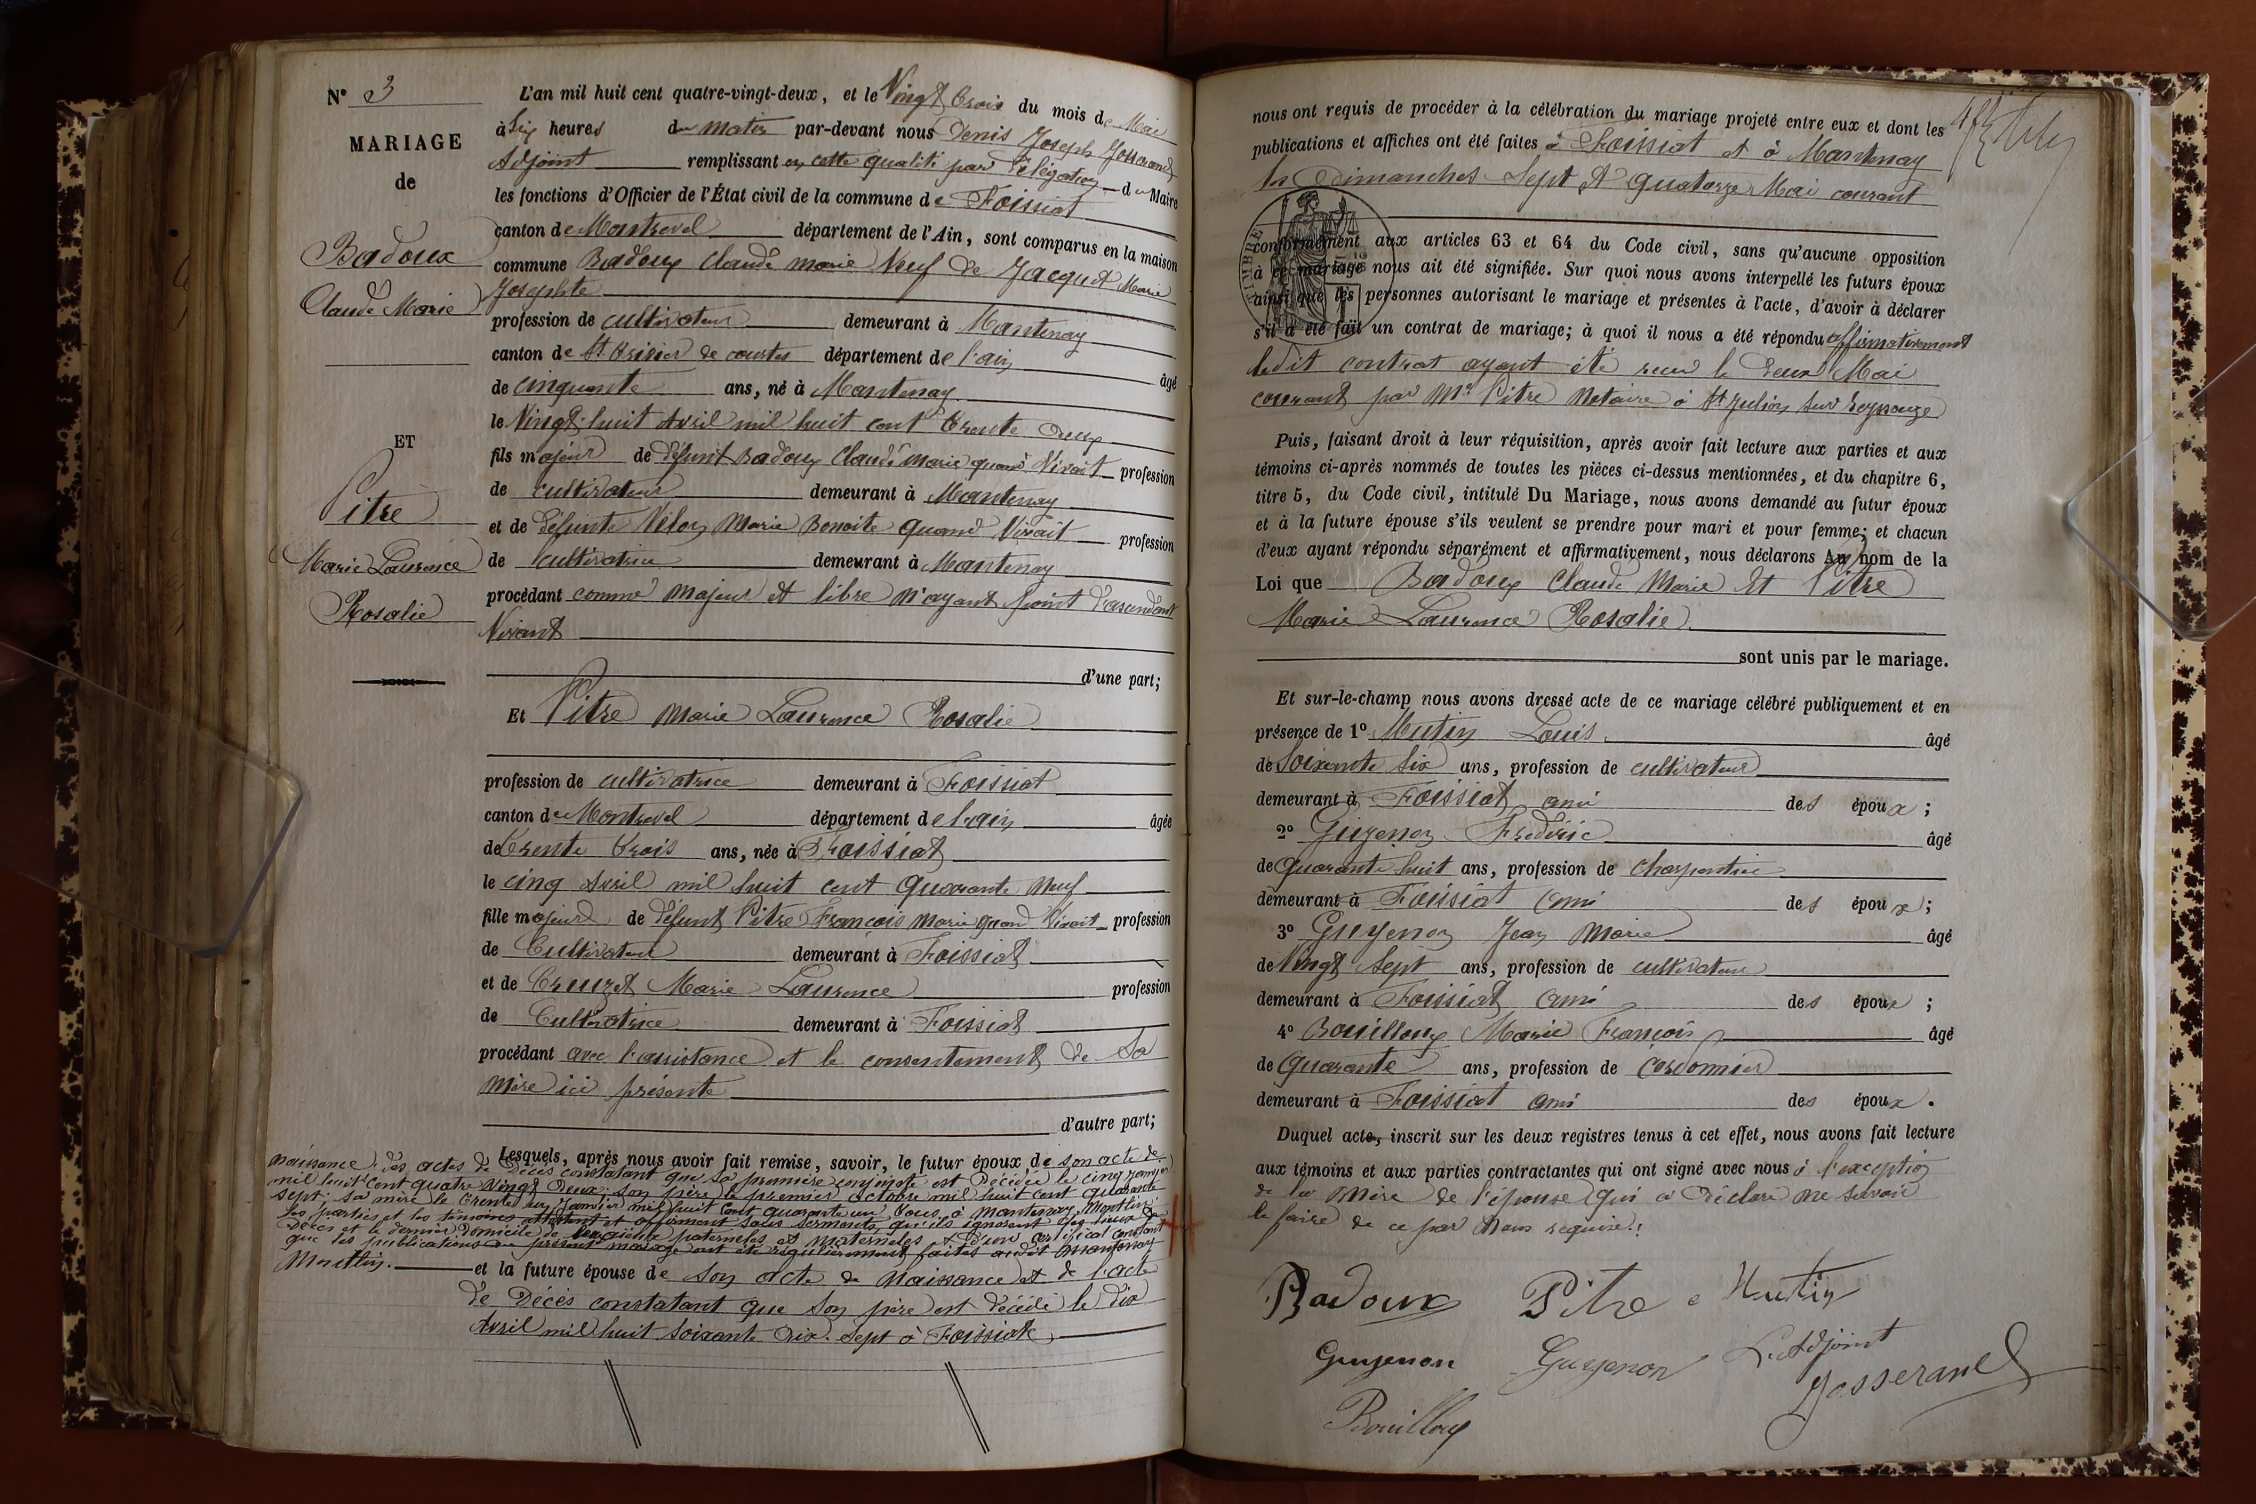 N° 3
MARIAGE
de
Badoux
Claude Marie
ET
Pitre
Marie Laurence
Rosalie
L'an mil huit cent quatre-vingt-deux, et le Vingt trois du mois de Mai
à Six heures du matin par-devant nous Denis Joseph Josserand
Adjoint remplissant en cette qualité par Délégation du Maire
les fonctions d'Officier de l'État civil de la commune de Foissiat
canton de Montrevel département de l'Ain, sont comparus en la maison
commune Badoux Claude marie Veuf de Jacquet Marie
Josephte
profession de cultivateur demeurant à Mantenay
canton de St trivier de courtes département de l'ain
âgé
de cinquante ans, né à Mantenay
le Vingt-huit Avril mil huit cent trente deux
fils majeur de défunt Badoux Claude marie quand Vivait profession
de cultivateur demeurant à Mantenay
et de défunte Velon Marie Benoite quand Vivait profession
de cultivatrice demeurant à Mantenay
procédant comme majeur et libre n'ayant point d'ascendant
Vivant
d'une part;
Et Pitre Marie Laurence Rosalie
profession de cultivatrice demeurant à Foissiat
canton de Montrevel département de l'ain âgée
de trente trois ans, née à Foissiat
le cinq Avril mil huit cent quarante neuf
fille majeure de défunt Pitre François Marie quand Vivait profession
de Cultivateur demeurant à Foissiat
et de Creuzet Marie Laurence profession
de Cultivatrice demeurant à Foissiat
procédant avec l'assistance et le consentement de Sa
Mère ici présente
d'autre part;
Lesquels, après nous avoir fait remise, savoir, le futur époux de son acte de
naissance, des actes de Décès constatant que sa première conjointe est Décédée le cinq janvier
mil huit cent quatre Vingt Deux. Son père le premier octobre mil huit cent quarante
sept. Sa mère le trente un Janvier mil huit cent quarante un tous à Mantenay Montlin
les parties et les témoins attestent et affirment sous serments qu'ils ignorent les lieux de
Décès et le dernier Domicile de les aieux paternels et maternels & d'un certificat constatant
que les publications du présent mariage ont été régulièrement faites audit Mantenay
Montlin. et la future épouse de Son acte de Naissance et de l'acte
de Décès constatant que Son père est décédé le dix
Avril mil huit Soixante Dix-sept à Foissiat
nous ont requis de procéder à la célébration du mariage projeté entre eux et dont les
publications et affiches ont été faites à Foissiat et à Mantenay
les Dimanches Sept et quatorze Mai courant
TIMBRE
conformément aux articles 63 et 64 du Code civil, sans qu'aucune opposition
à ce mariage nous ait été signifiée. Sur quoi nous avons interpellé les futurs époux
ainsi que les personnes autorisant le mariage et présentes à l'acte, d'avoir à déclarer
s'il a été fait un contrat de mariage; à quoi il nous a été répondu affirmativement
ledit contrat ayant été recu le deux Mai
courant par Me Pitre Notaire à St Julien Sur Reyssouze
Puis, faisant droit à leur réquisition, après avoir fait lecture aux parties et aux
témoins ci-après nommés de toutes les pièces ci-dessus mentionnées, et du chapitre 6,
titre 5, du Code civil, intitulé Du Mariage, nous avons demandé au futur époux
et à la future épouse s'ils veulent se prendre pour mari et pour femme; et chacun
d'eux ayant répondu séparément et affirmativement, nous déclarons Au nom de la
Loi que Badoux Claude Marie et Pitre
Marie Laurence Rosalie
sont unis par le mariage.
Et sur-le-champ nous avons dressé acte de ce mariage célébré publiquement et en
présence de 1° Mutin Louis âgé
de Soixante Six ans, profession de cultivateur
demeurant à Foissiat ami des époux;
2° Guyenon Fréderic âgé
de quarante huit ans, profession de charpentier
demeurant à Foissiat ami des époux;
3° Guyenon Jean Marie âgé
de Vingt Sept ans, profession de cultivateur
demeurant à Foissiat ami des époux;
4° Bouilloux Marie François âgé
de quarante ans, profession de cordonnier
demeurant à Foissiat ami des époux.
Duquel acte, inscrit sur les deux registres tenus à cet effet, nous avons fait lecture
aux témoins et aux parties contractantes qui ont signé avec nous à l'exception
de la Mère de l'épouse qui a déclaré ne savoir
le faire de ce par Nous requise.
Badoux Pitre Mutin
Guyenon Guyenon L'Adjoint
Josserand
Bouilloux